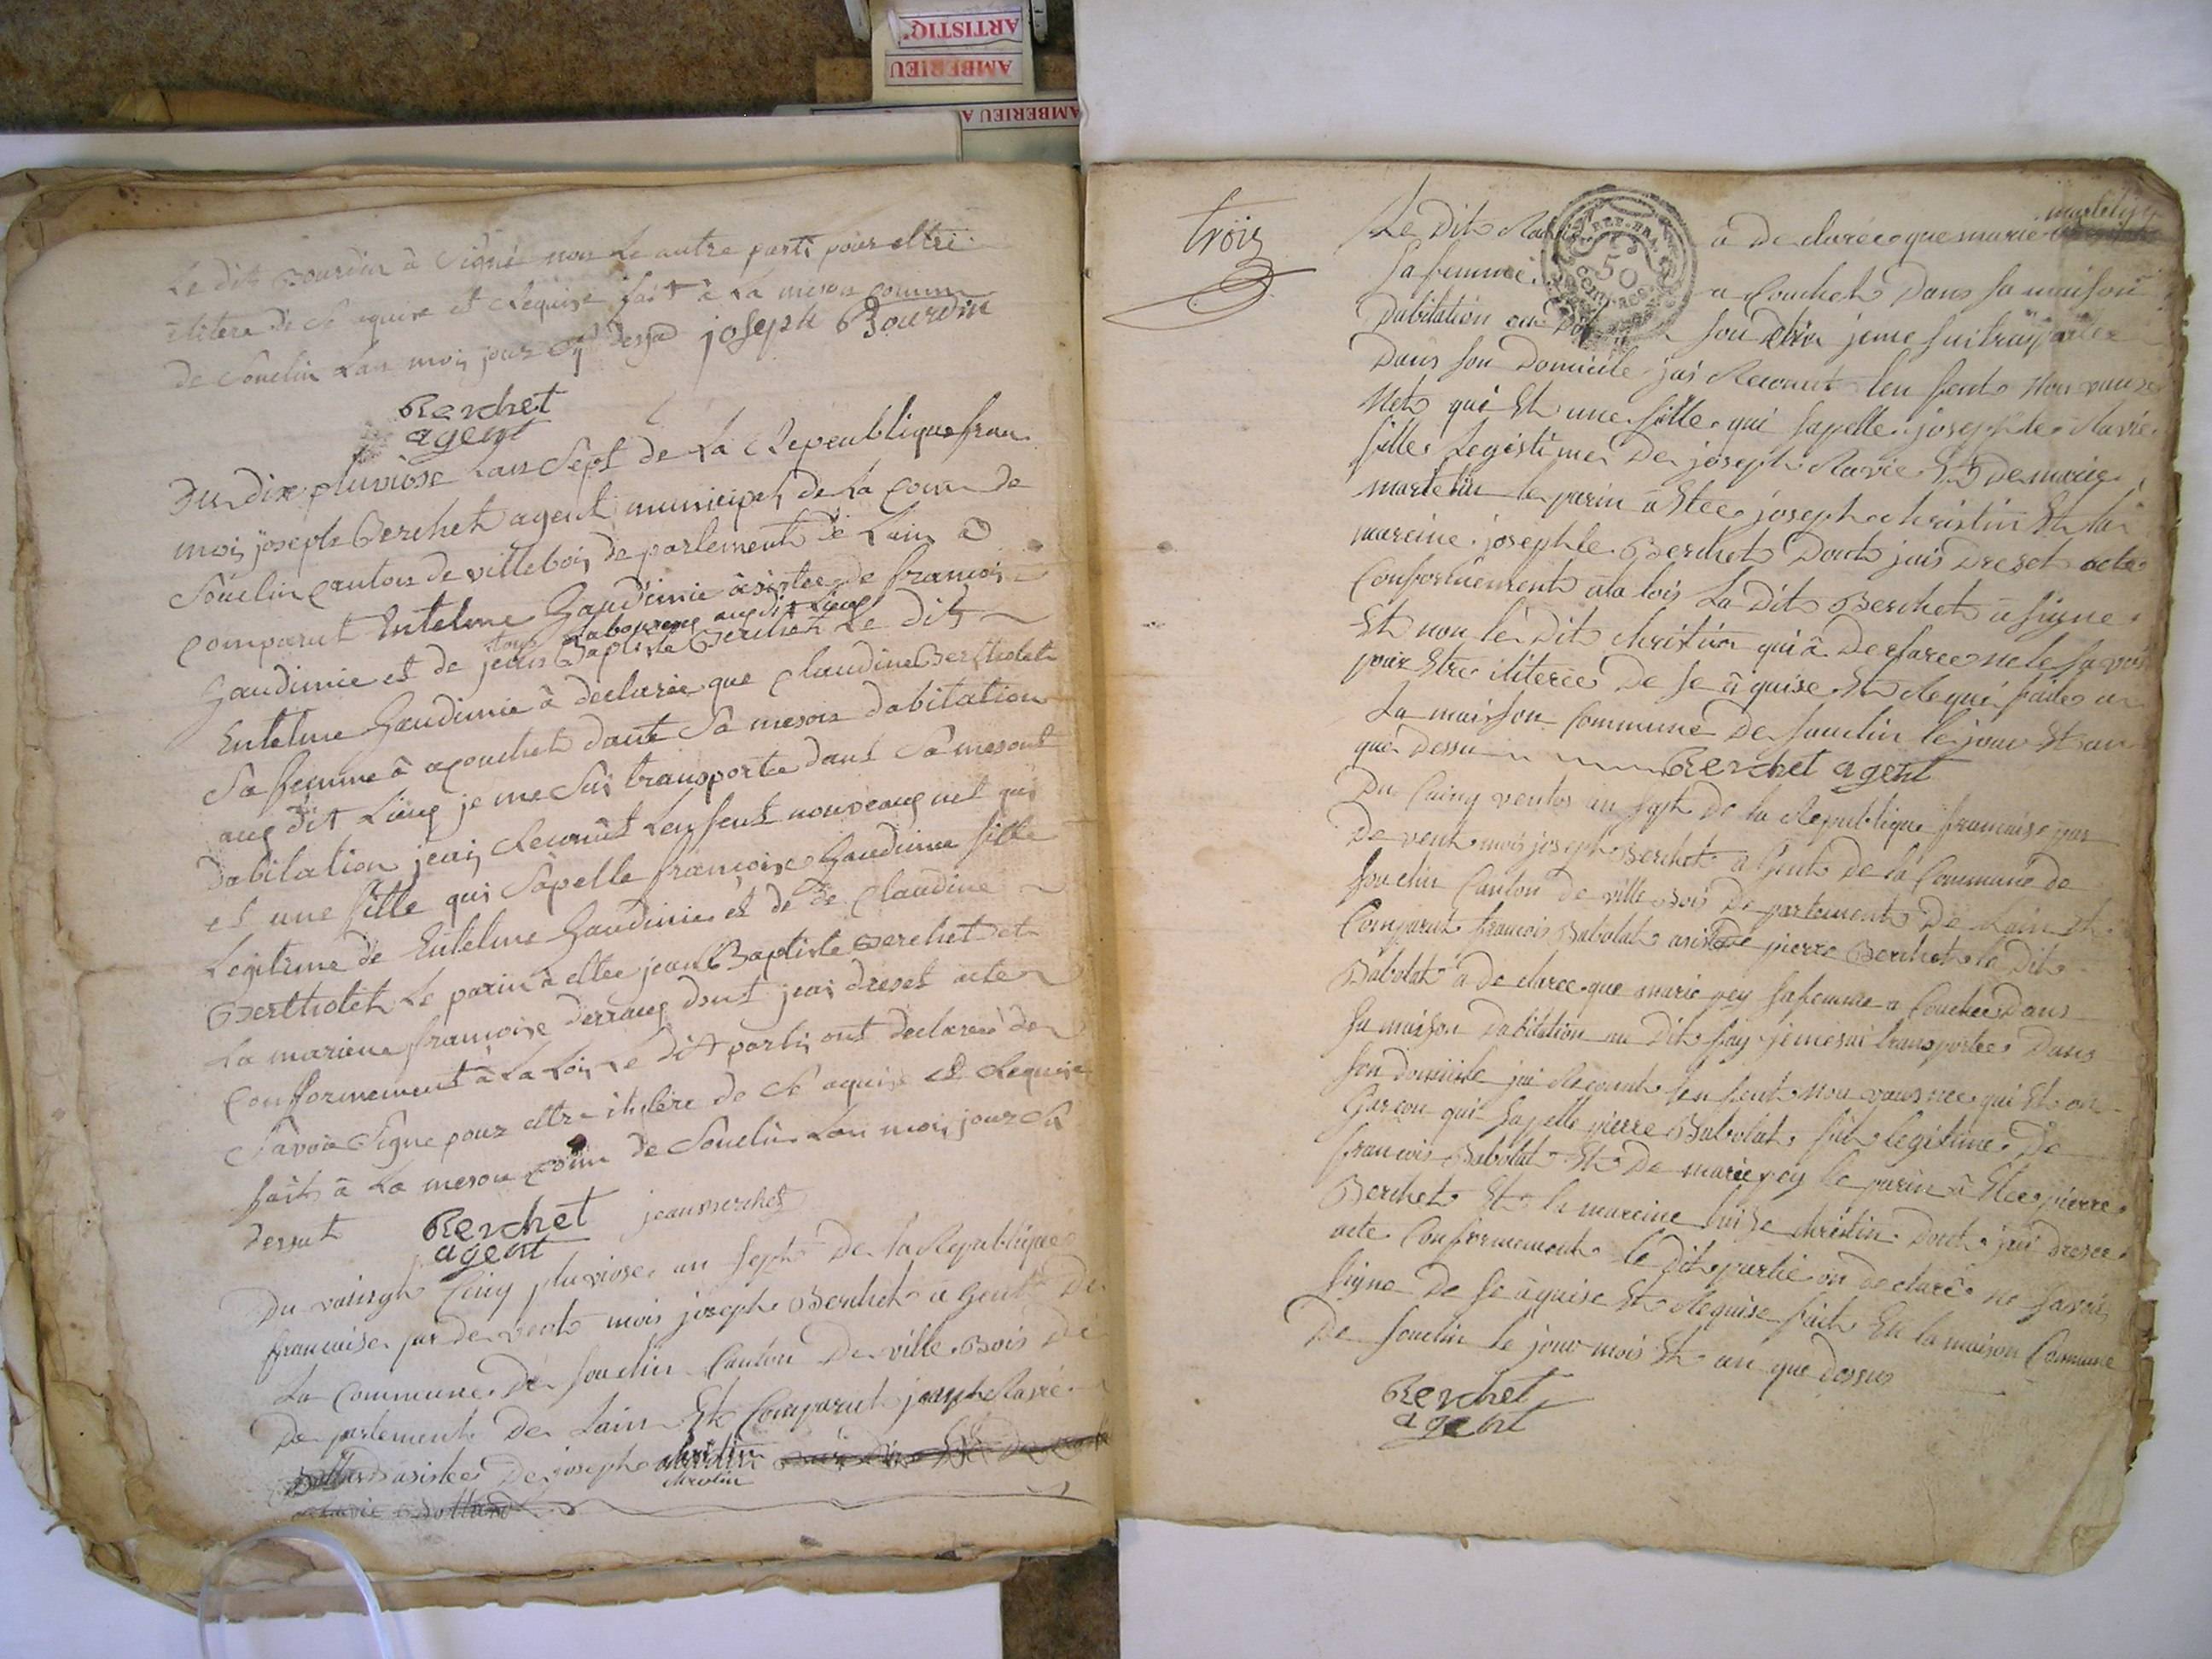 ARTISTIQ'
AMBERIEU
AMBERIEU A
Le dit Bourdin à Signé non Le autre parti pour eltre
ilitere de Ce aquise et Requise fait à La meson comm
de Souclin Lan mois jour que dessu joseph Bourdin
Berchet
agent
Du dix pluviose Lan Sept de La Republique fran
mois joseph Berchet agent municipal de La Com de
Souclin Canton de villebois departement de Lain a
comparut Entelme Gaudinie asistee de francois
tous Laboureus au dit Lieux
Gaudinie et de jean Baptiste Berchet Le dit
Entelme Gaudinie à declarée que Claudine Bertholet
Sa femme à acouchet dant Sa meson dabitation
aux dit Lieux je me Sui transportée dant Sa mesont
dabitation jeai Reconut Lenfent nouveaux net qui
et une fille qui Sapelle francoise Gaudinie fille
Legitime de Entelme Gaudinie et de de Claudine
Bertholet Le parin à eltee jean Baptiste Berchet et
La mareine francoise derraux dont jeai dreset acte
Conformement à La Loi Le dit parti ont declareé de
Savoir Signe pour eltre ilitere de Ce aquise et Requise
fait à La meson com de Souclin Lan mois jour
dessut
Berchet jean berchet
agent
Du vaingt Cinq pluviose an Sept De la Republique
francaise par de vent mois joseph Berchet a Gent De
La Commune De Souclin Canton De ville Bois De
De partement De Lain Et Comparut joseph Ravie
asistee De joseph christin
christin
trois
50
Le Dit Ravie a De claree que marie martelin
Sa femme a Couchet Dans sa maison
Dabitation au Dit jeme sui transportee
Dans son Domicile jai Reconut len fent Nou vaux
Net qui Et une fille qui sapelle josephte Ravie
fille Legistime De joseph Ravie Et De marie
martelin le parin a Etee joseph christin Et la
mareine josephte Berchet Dont jais Dreset acte
Conformement a la lois La Dit Berchet a signe
Et non le Dit christin qui a De claree ne le savoir
pour Etre iliteree De se a quise Et Requi faite a
La maison Commune De Souclin le jour Et an
que Dessu Berchet agent
Du Cainq ventos an sept De la Republique francaise par
De vent mois joseph Berchet a Gent De la Commune de
Souclin Canton de ville Bois De partement De Lain Et
Comparut francois Babolat asistee De pierre Berchet le Dit
Babolat a De claree que marie pey sa femme a Couchee Dans
sa maison Dabitation au Dit fay jemesui transportee Dans
son domicile jai Reconut len fent nou vaux nee qui Et on
Garcon qui sapelle pierre Babolat fils legitime De
francois Babolat Et De marie pey le parin a Etee pierre
Berchet Et la mareine luise christin Dont jai Dresee
acte Conformement le Dit partie on De claré ne savoir
signe De se a quise Et Requise fait En la maison Commune
De Souclin le jour mois Et an que Dessus
Berchet
agent